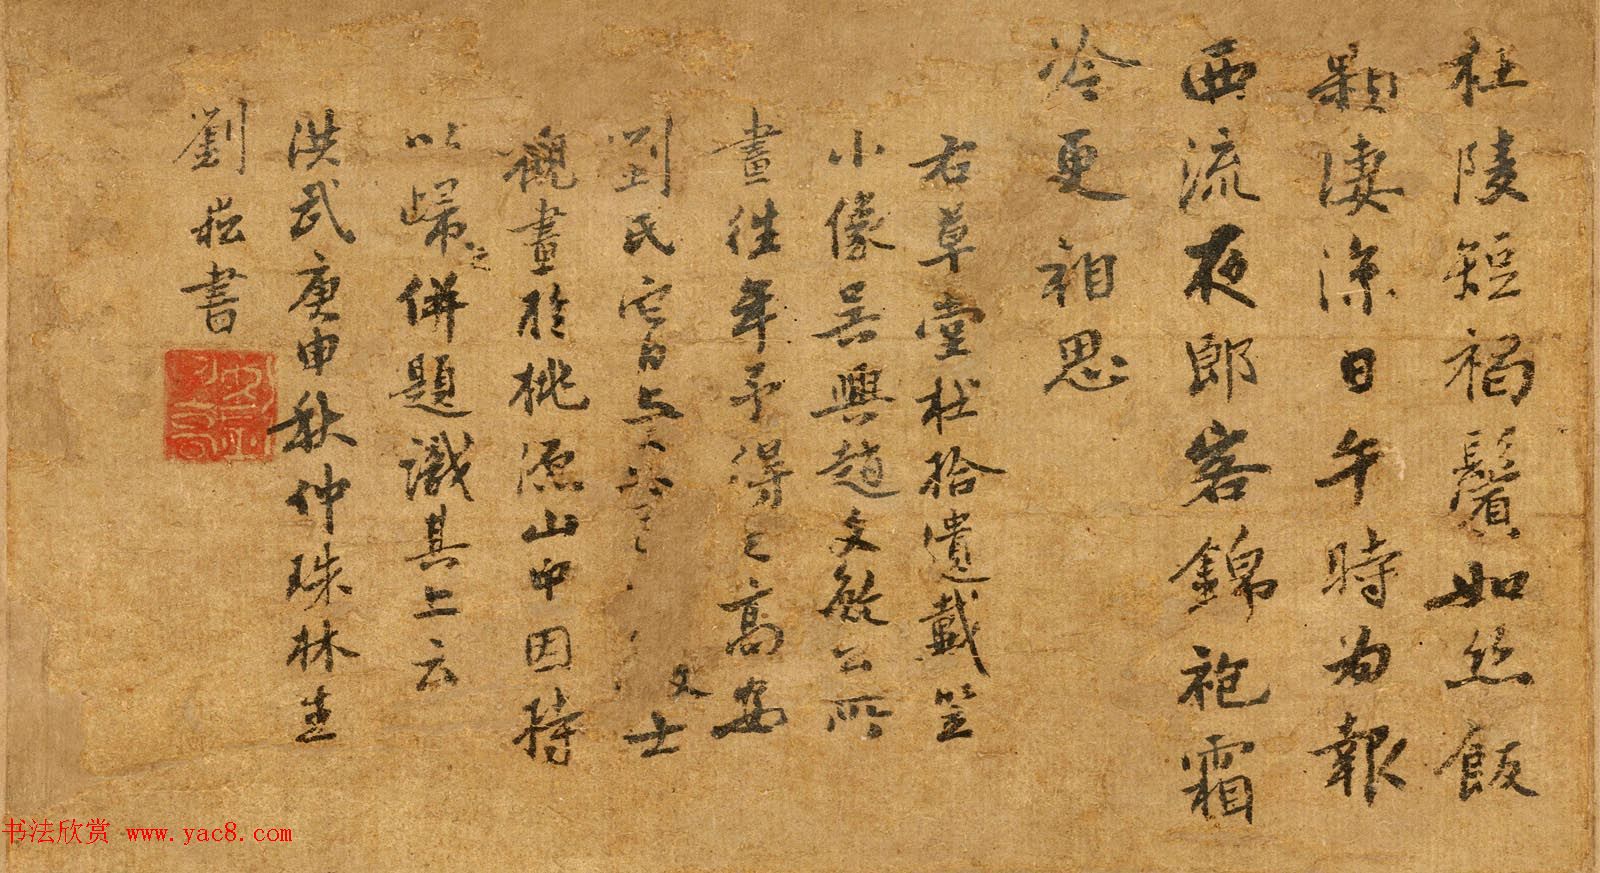 杜陵短褐鬢如絲飯
顆淒涼日午時為報
西流夜郎客錦袍霜
冷更相思
右草堂杜拾遺戴笠
小像吳興趙文敏公所
畫往年予得之高安
劉氏 文士
觀畫於桃源山中因持
以歸之併題識其上云
洪武庚申秋仲珠林生
劉崧書
书法欣赏 www.yac8.com